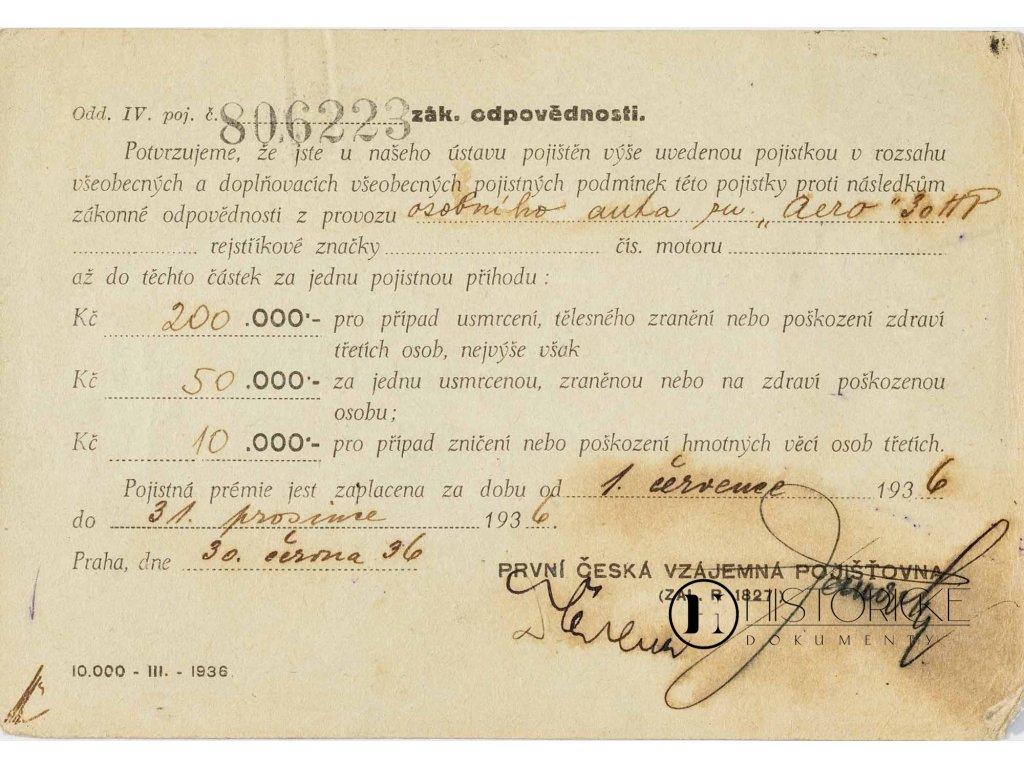 Odd. IV. poj. č. 806223 zák. odpovědnosti.
Potvrzujeme, že jste u našeho ústavu pojištěn výše uvedenou pojistkou v rozsahu
všeobecných a doplňovacích všeobecných pojistných podmínek této pojistky proti následkům
zákonné odpovědnosti z provozu osobního auta zn. „Aero" 30 HP
rejstříkové značky čís. motoru
až do těchto částek za jednu pojistnou příhodu :
Kč 200 .000·- pro případ usmrcení, tělesného zranění nebo poškození zdraví
třetích osob, nejvýše však
Kč 50 .000·- za jednu usmrcenou, zraněnou nebo na zdraví poškozenou
osobu;
Kč 10 .000·- pro případ zničení nebo poškození hmotných věcí osob třetích.
Pojistná prémie jest zaplacena za dobu od 1. července 1936
do 31. prosince 1936.
Praha, dne 30. června 36
PRVNÍ ČESKÁ VZÁJEMNÁ POJIŠŤOVNA
(ZAL. R. 1827)
HISTORICKÉ
DOKUMENTY
10.000 - III. - 1936